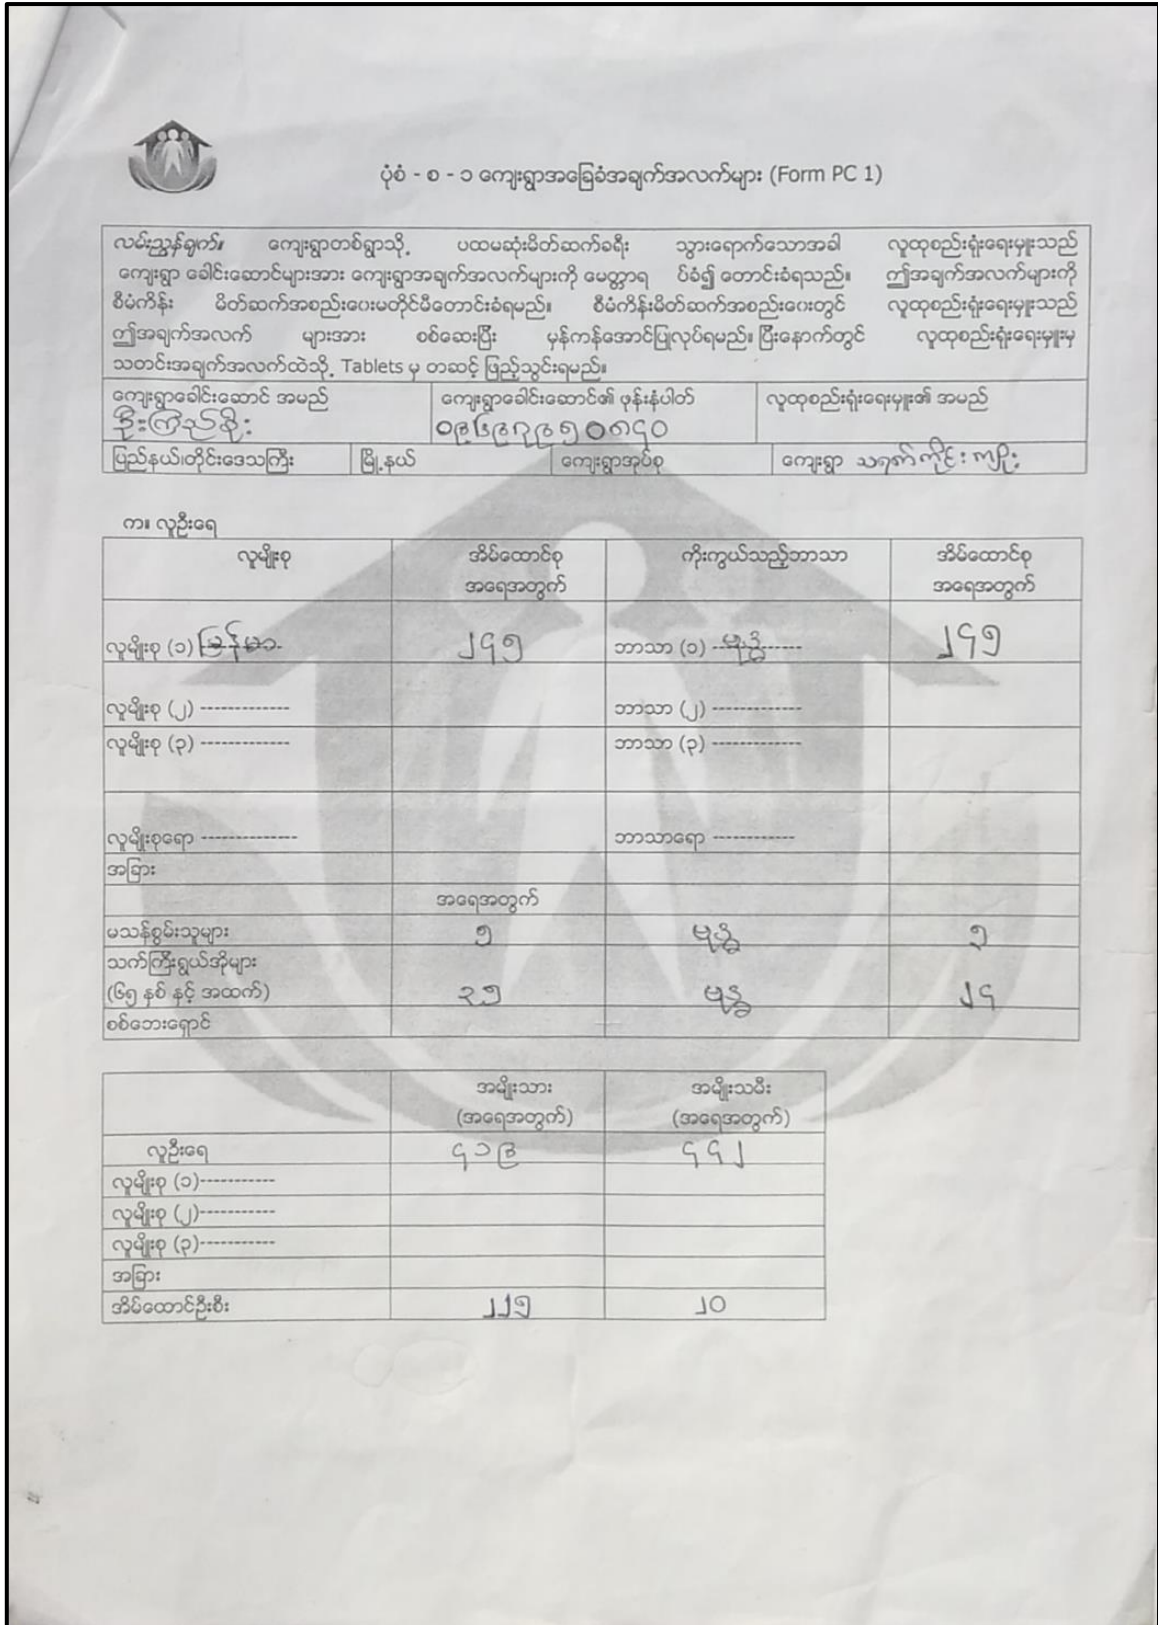 ပုံစံ - စ - ၁ ကျေးရွာအခြေခံအချက်အလက်များ (Form PC 1)
လမ်းညွှန်ချက်။ ကျေးရွာတစ်ရွာသို့ ပထမဆုံးမိတ်ဆက်ခရီး သွားရောက်သောအခါ လူထုစည်းရုံးရေးမှူးသည်
ကျေးရွာ ခေါင်းဆောင်များအား ကျေးရွာအချက်အလက်များကို မေတ္တာရ ပ်ခံ၍ တောင်းခံရသည်။ ဤအချက်အလက်များကို
စီမံကိန်း မိတ်ဆက်အစည်းဝေးမတိုင်မီတောင်းခံရမည်။ စီမံကိန်းမိတ်ဆက်အစည်းဝေးတွင် လူထုစည်းရုံးရေးမှူးသည်
ဤအချက်အလက် များအား စစ်ဆေးပြီး မှန်ကန်အောင်ပြုလုပ်ရမည်။ ပြီးနောက်တွင် လူထုစည်းရုံးရေးမှူးမှ
သတင်းအချက်အလက်ထဲသို့ Tablets မှ တဆင့် ဖြည့်သွင်းရမည်။
ကျေးရွာခေါင်းဆောင် အမည် ကျေးရွာခေါင်းဆောင်၏ ဖုန်းနံပါတ် လူထုစည်းရုံးရေးမှူး၏ အမည်
ဦးကြည်စိုး ၀၉၆၉၇၉၅၀၈၄၀
ပြည်နယ်၊တိုင်းဒေသကြီး မြို့နယ် ကျေးရွာအုပ်စု ကျေးရွာ သရက်ကိုင်းကျိုး
က။ လူဦးရေ
လူမျိုးစု အိမ်ထောင်စု ကိုးကွယ်သည့်ဘာသာ အိမ်ထောင်စု
အရေအတွက် အရေအတွက်
လူမျိုးစု (၁) မြန်မာ ၂၄၅ ဘာသာ (၁) ဗုဒ္ဓ ၂၄၅
လူမျိုးစု (၂) ------------- ဘာသာ (၂) -------------
လူမျိုးစု (၃) ------------- ဘာသာ (၃) -------------
လူမျိုးစုရော -------------- ဘာသာရော ------------
အခြား
အရေအတွက်
မသန်စွမ်းသူများ ၅ ဗုဒ္ဓ ၅
သက်ကြီးရွယ်အိုများ
(၆၅ နှစ် နှင့် အထက်) ၃၅ ဗုဒ္ဓ ၂၄
စစ်ဘေးရှောင်
အမျိုးသား အမျိုးသမီး
(အရေအတွက်) (အရေအတွက်)
လူဦးရေ ၄၁၉ ၄၄၂
လူမျိုးစု (၁)-----------
လူမျိုးစု (၂)-----------
လူမျိုးစု (၃)-----------
အခြား
အိမ်ထောင်ဦးစီး ၂၂၅ ၂၀